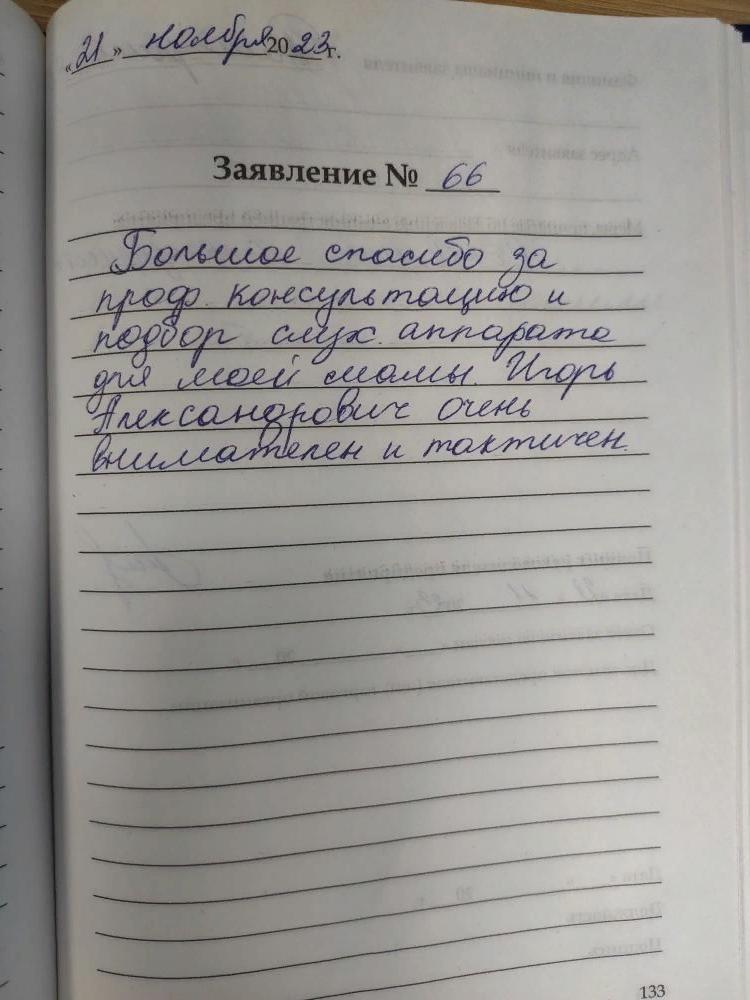 «21» ноября 2023 г.
Заявление № 66
Большое спасибо за
проф. консультацию и
подбор слух. аппарата
для моей мамы. Игорь
Александрович очень
внимателен и тактичен.
133